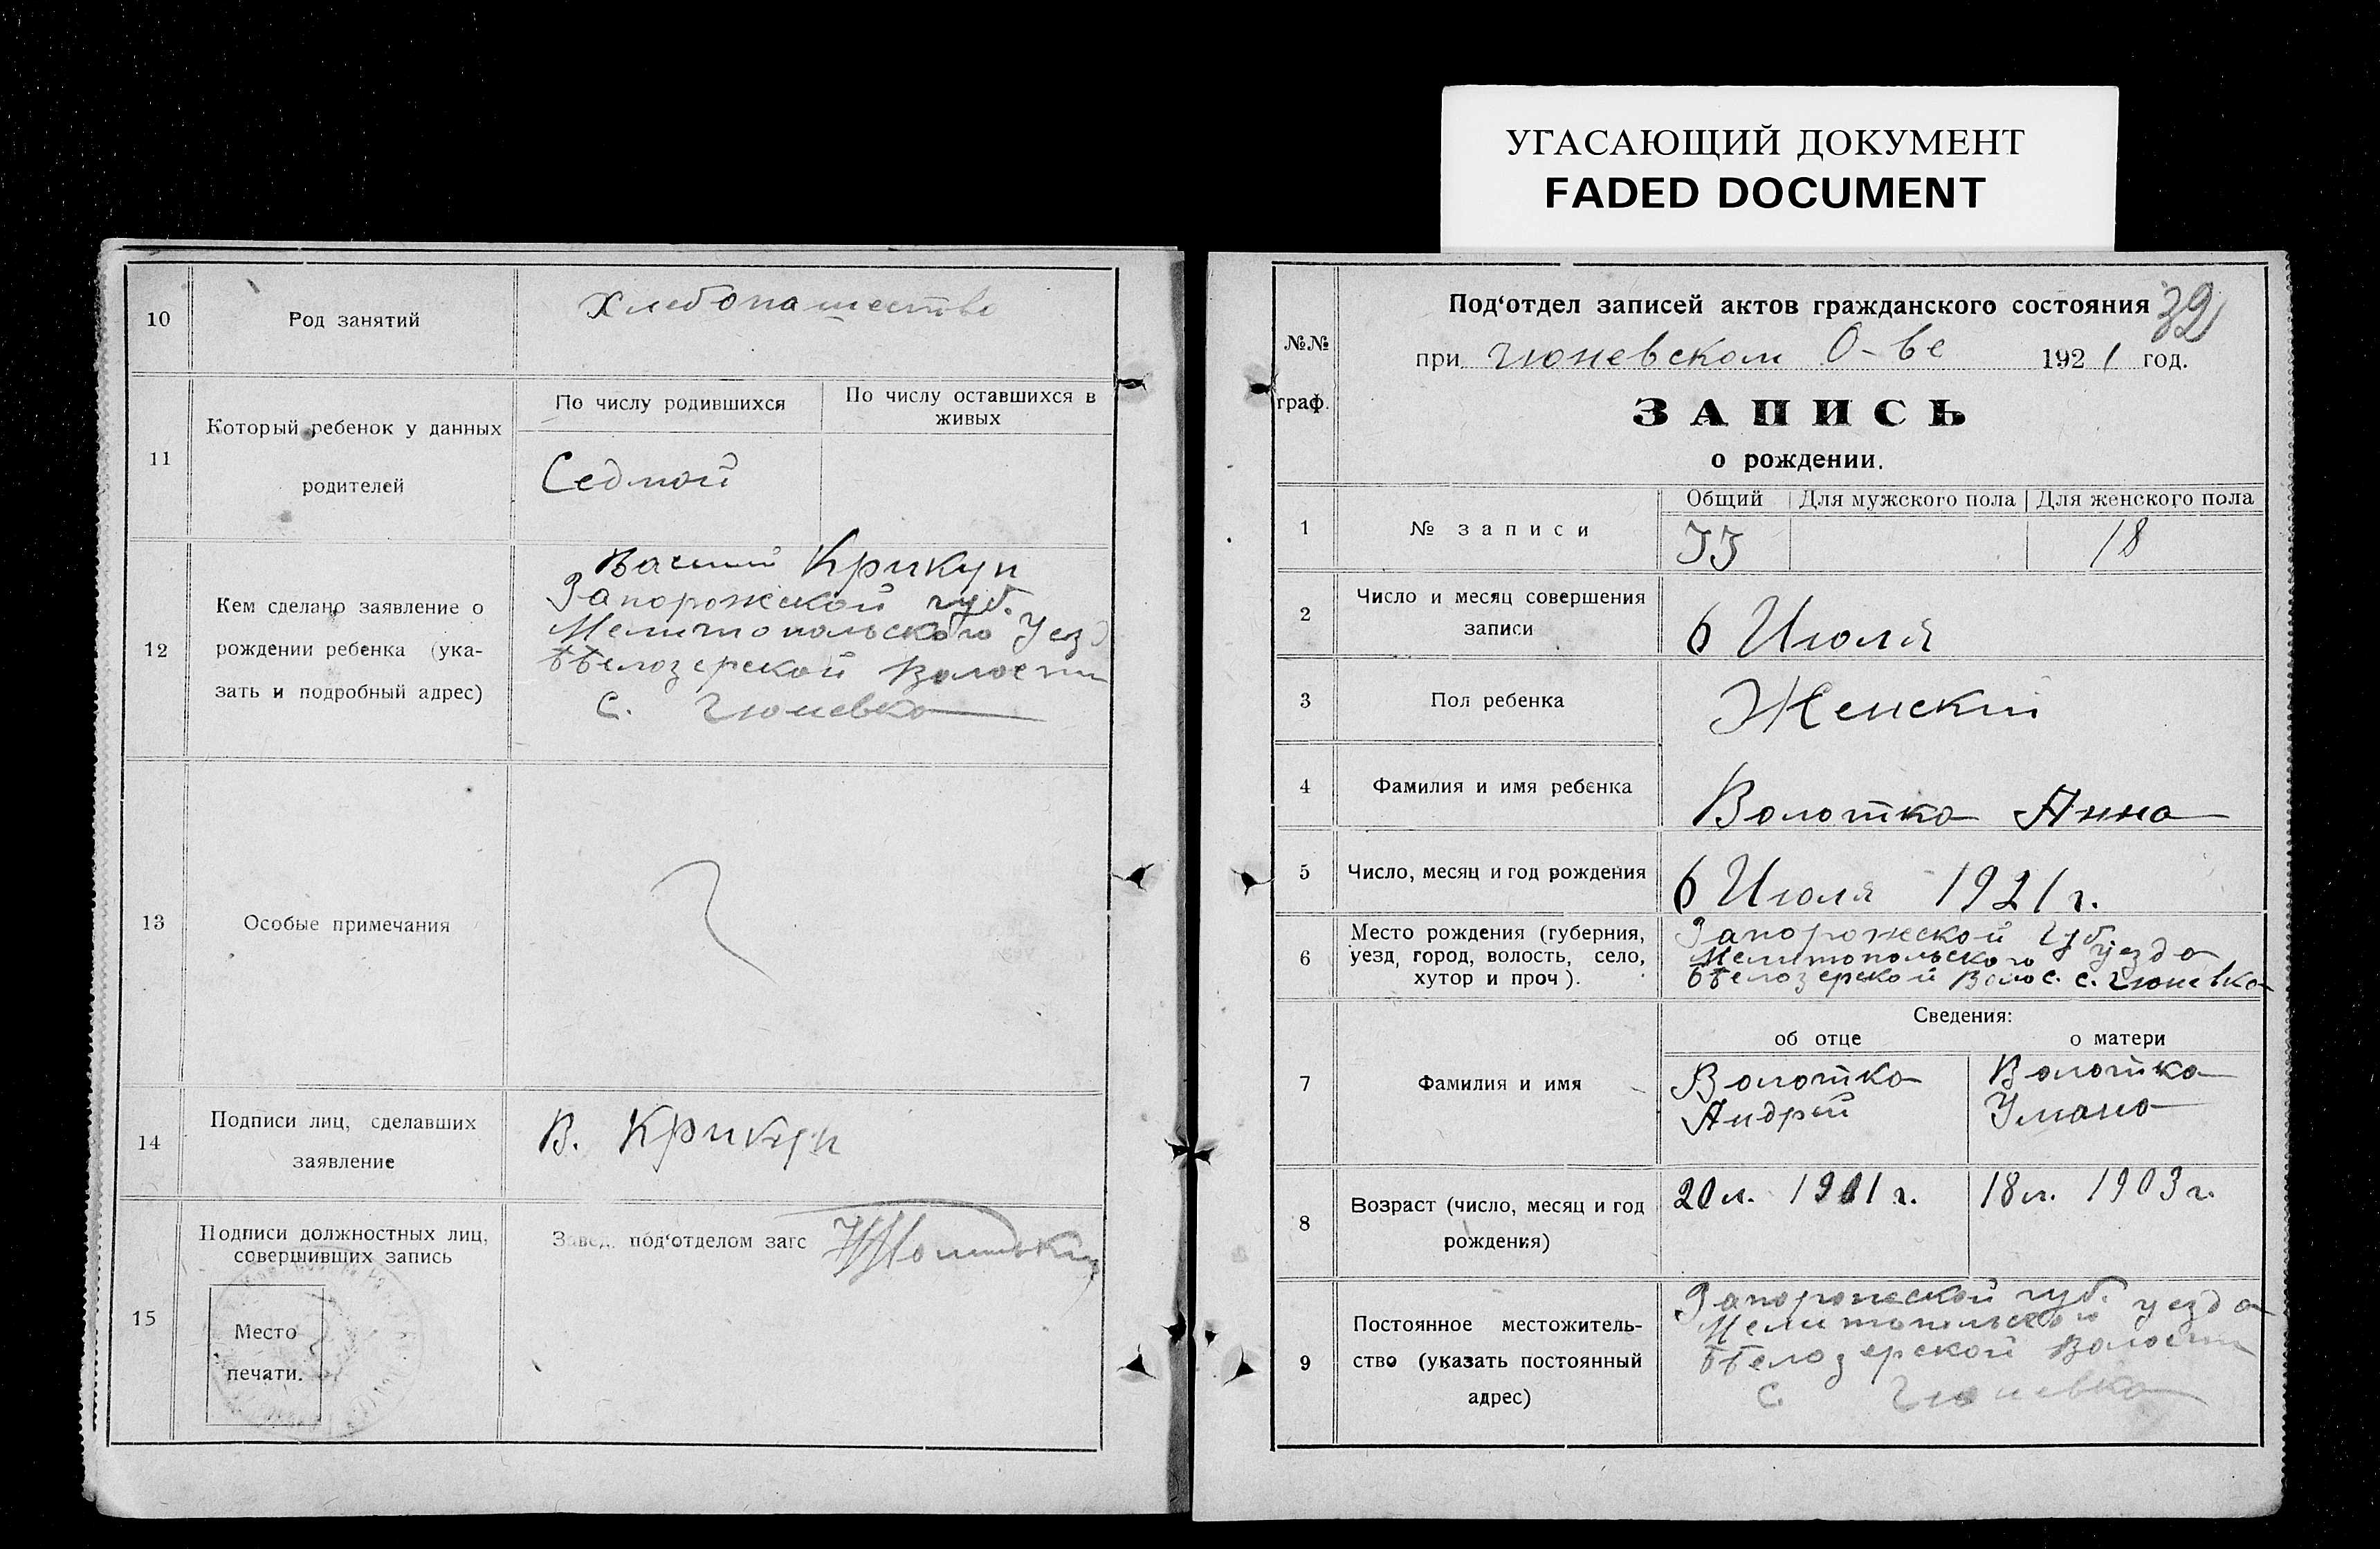 УГАСАЮЩИЙ ДОКУМЕНТ
FADED DOCUMENT
10
Род занятий
Хлебопашество
11
Который ребенок у данных
родителей
По числу родившихся
По числу оставшихся в
живых
Седмой
12
Кем сделано заявление о
рождении ребенка (ука-
зать и подробный адрес)
Василий Крикун
Запорожской губ.
Мелитопольского Уезд
Бѣлозерской Волости
С. Гюневка
13
Особые примечания
14
Подписи лиц, сделавших
заявление
В. Крикун
15
Подписи должностных лиц,
совершивших запись
Место
печати.
Завед. под'отделом загс
№№
граф.
Под'отдел записей актов гражданского состояния
32
при Гюневском О-ве 1921 год.
ЗАПИСЬ
о рождении.
1
№ записи
Общий
Для мужского пола
Для женского пола
33
18
2
Число и месяц совершения
записи
6 Июля
3
Пол ребенка
Женский
4
Фамилия и имя ребенка
Волотка Анна
5
Число, месяц и год рождения
6 Июля 1921 г.
6
Место рождения (губерния,
уезд, город, волость, село,
хутор и проч).
Запорожской губ
Мелитопольского уезда
Бѣлозерской Волос. с. Гюневка
Сведения:
об отце
о матери
7
Фамилия и имя
Волотка
Андрей
Волотка
8
Возраст (число, месяц и год
рождения)
20 л. 1901 г.
18 л. 1903 г.
9
Постоянное местожитель-
ство (указать постоянный
адрес)
Запорожской губ.
Мелитопольского уезда
Бѣлозерской Волости
С. Гюневка